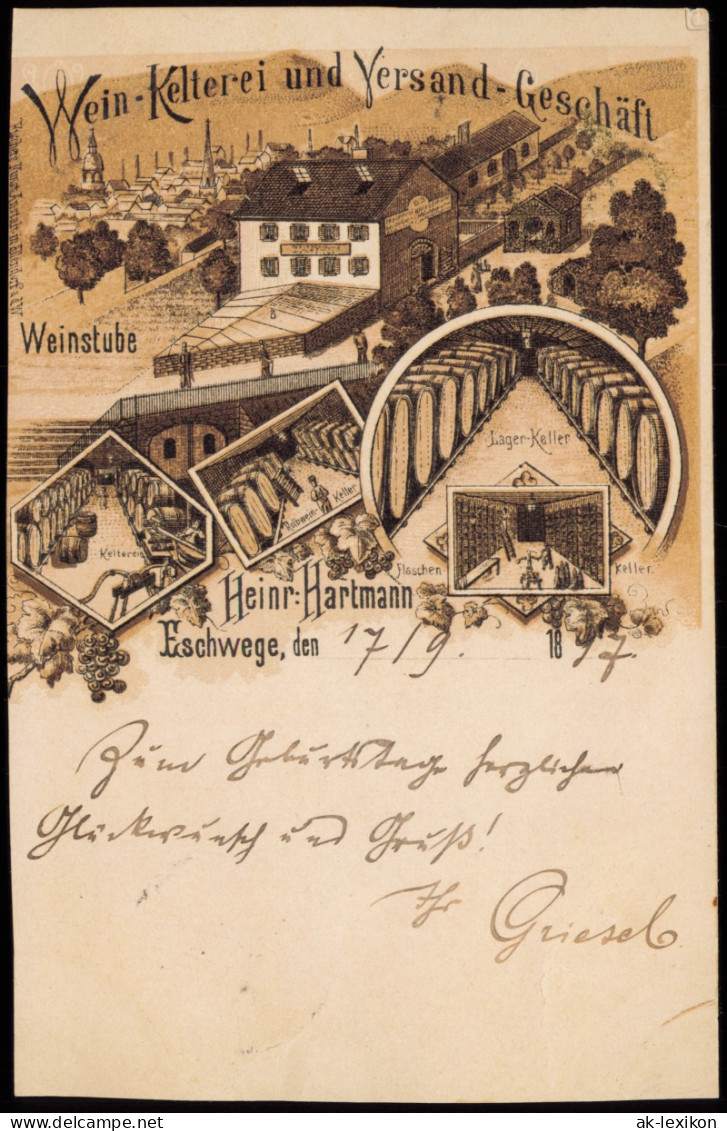 Wein-Kelterei und Versand-Geschäft
Weinstube
Lager-Keller
Keller
Kelterei
Flaschen Keller.
Heinr: Hartmann
Eschwege, den 17/9. 1897.
Zum Geburtstage herzlichen
Glückwunsch und Gruß!
Ihr
Griesel
ak-lexikon.com